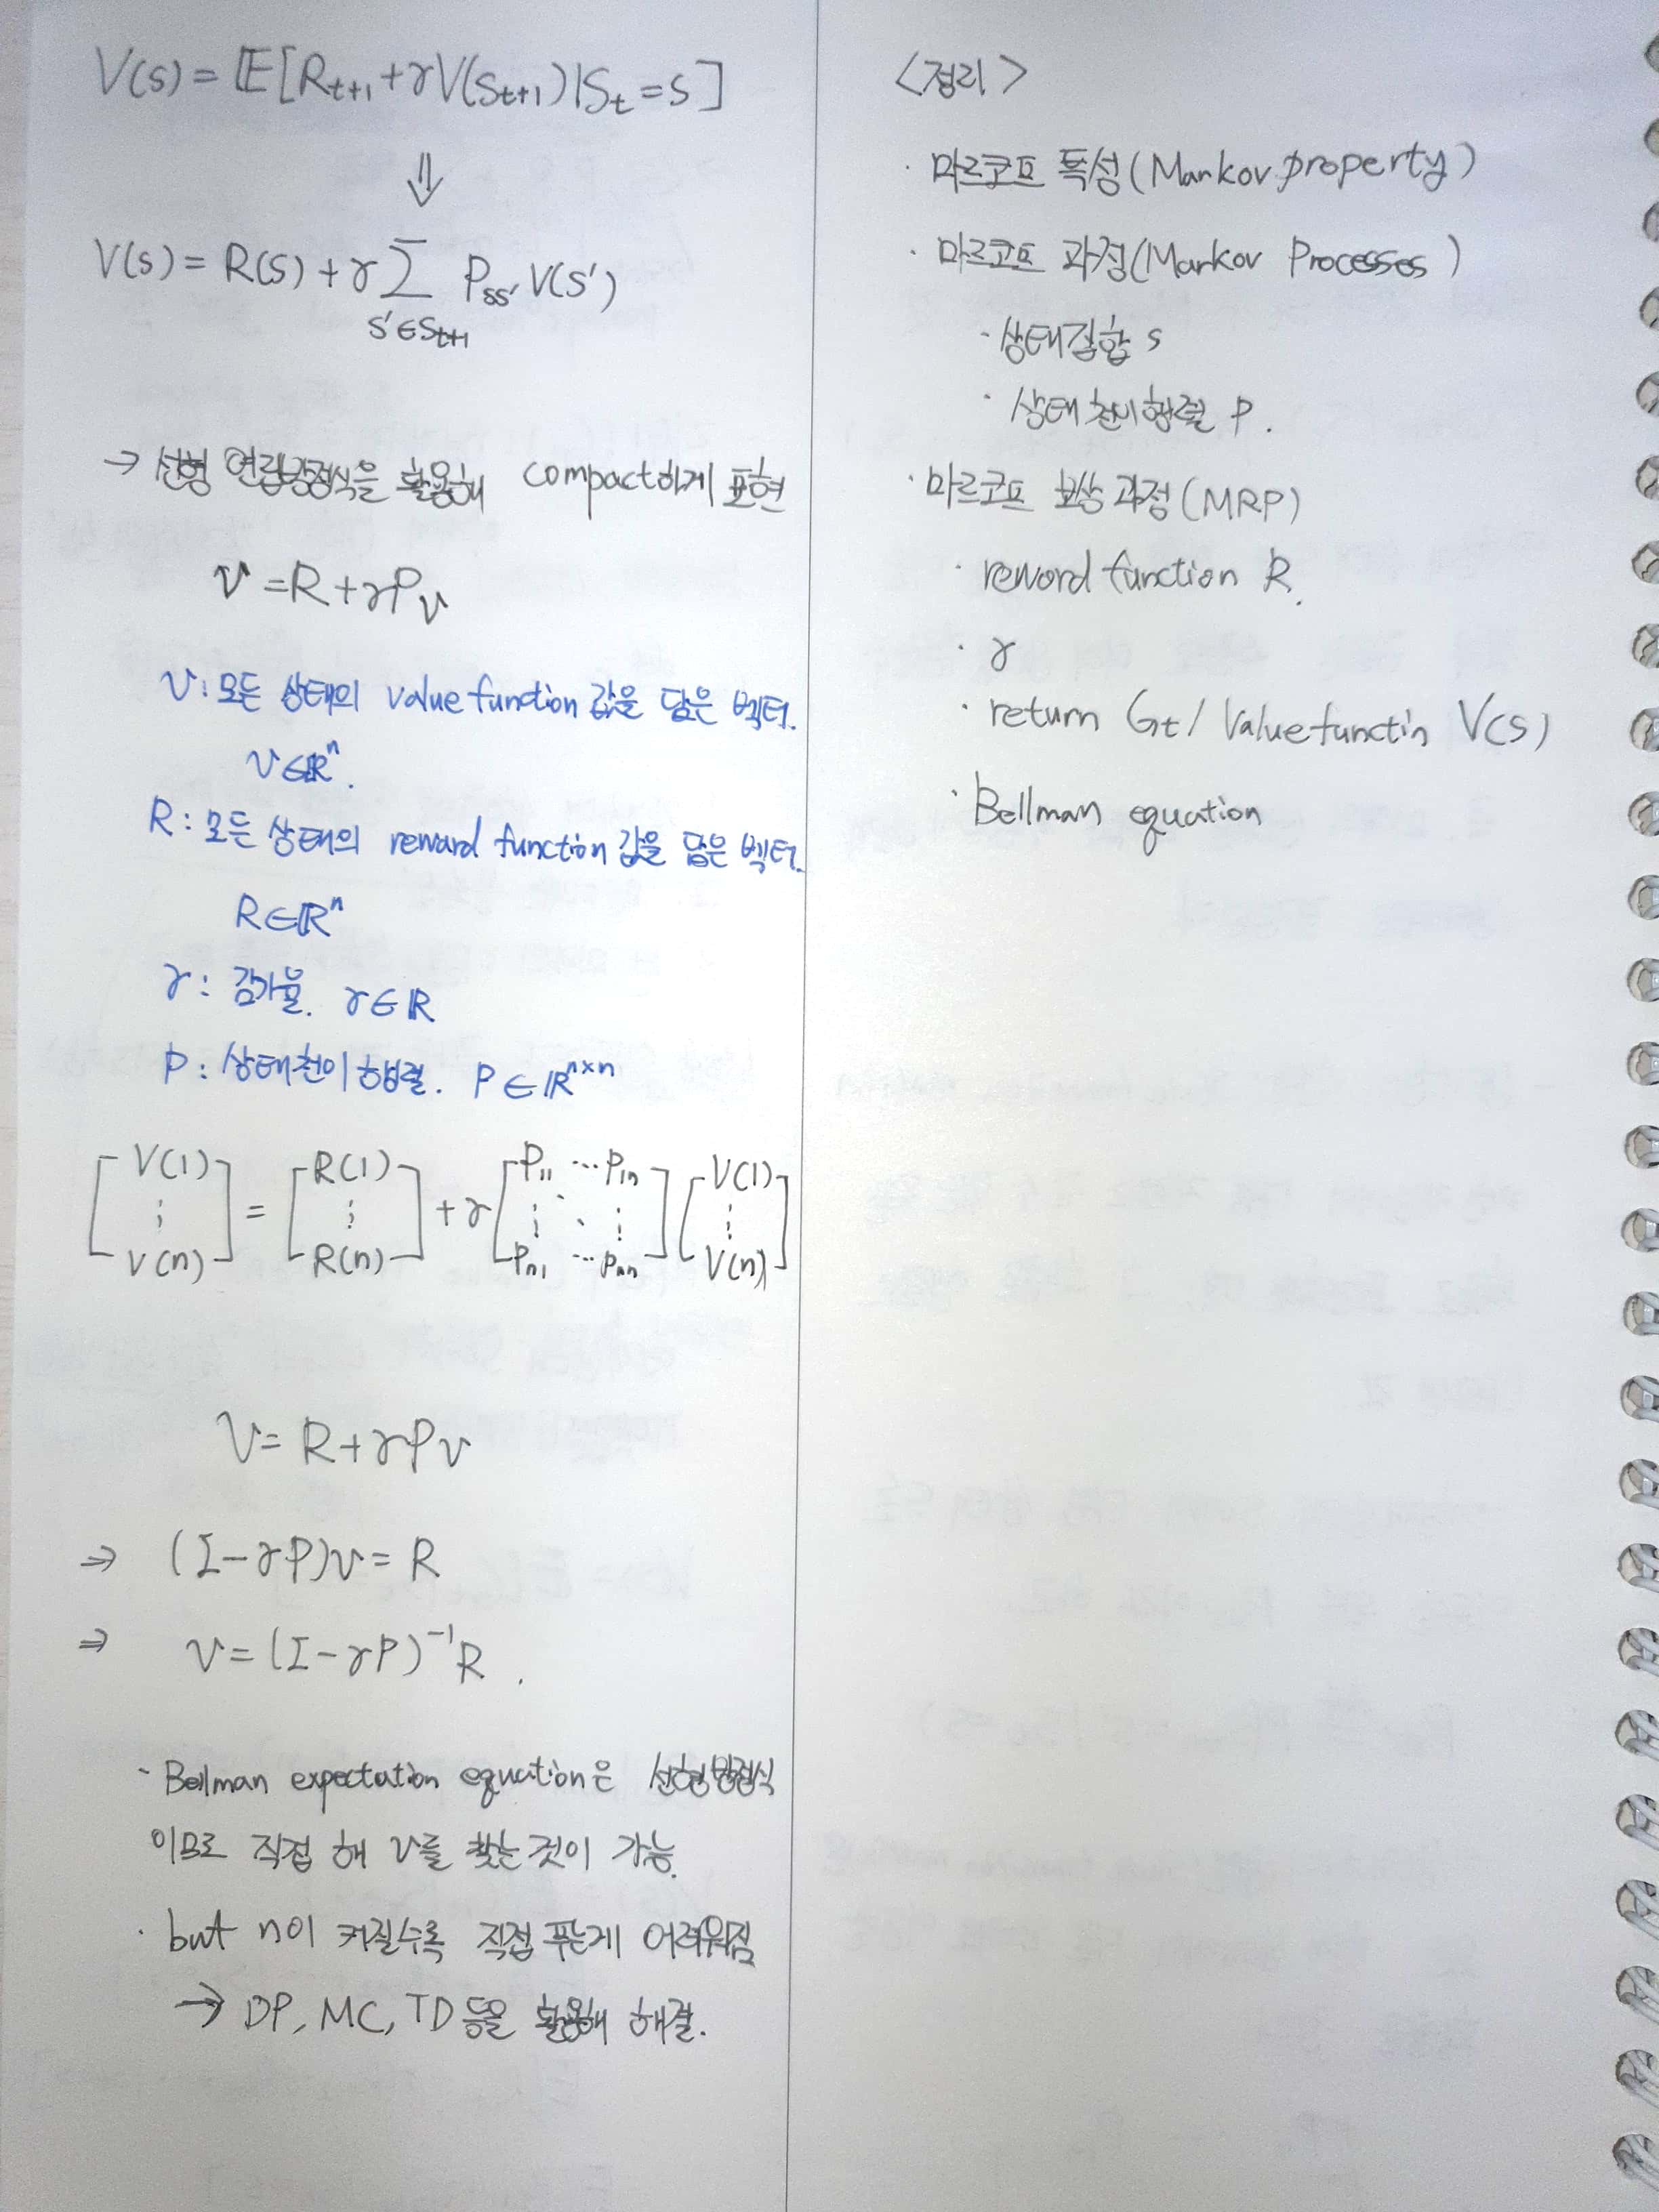 V(s) = 𝔼[R_{t+1} + γV(S_{t+1}) | S_t = s]
⇓
V(s) = R(s) + γ Σ_{s'∈S_{t+1}} P_{ss'} V(s')
→ 선형 연립방정식을 활용해 compact하게 표현
v = R + γPv
v : 모든 상태의 value function 값을 담은 벡터.
v ∈ ℝ^n.
R : 모든 상태의 reward function 값을 담은 벡터.
R ∈ ℝ^n
γ : 감가율. γ ∈ ℝ
P : 상태천이 행렬. P ∈ ℝ^{n×n}
[V(1) ⋮ V(n)] = [R(1) ⋮ R(n)] + γ [P_{11} ⋯ P_{1n} ⋮ ⋱ ⋮ P_{n1} ⋯ P_{nn}] [V(1) ⋮ V(n)]
v = R + γPv
⇒ (I - γP)v = R
⇒ v = (I - γP)^{-1} R.
- Bellman expectation equation은 선형방정식
이므로 직접 해 v를 찾는것이 가능.
· but n이 커질수록 직접 푸는게 어려워짐
→ DP, MC, TD 등을 활용해 해결.
<정리>
· 마르코프 특성(Markov property)
· 마르코프 과정(Markov Processes)
· 상태집합 s
· 상태 천이행렬 P.
· 마르코프 보상 과정(MRP)
· reword function R.
· γ
· return G_t / Value functin V(s)
· Bellman equation